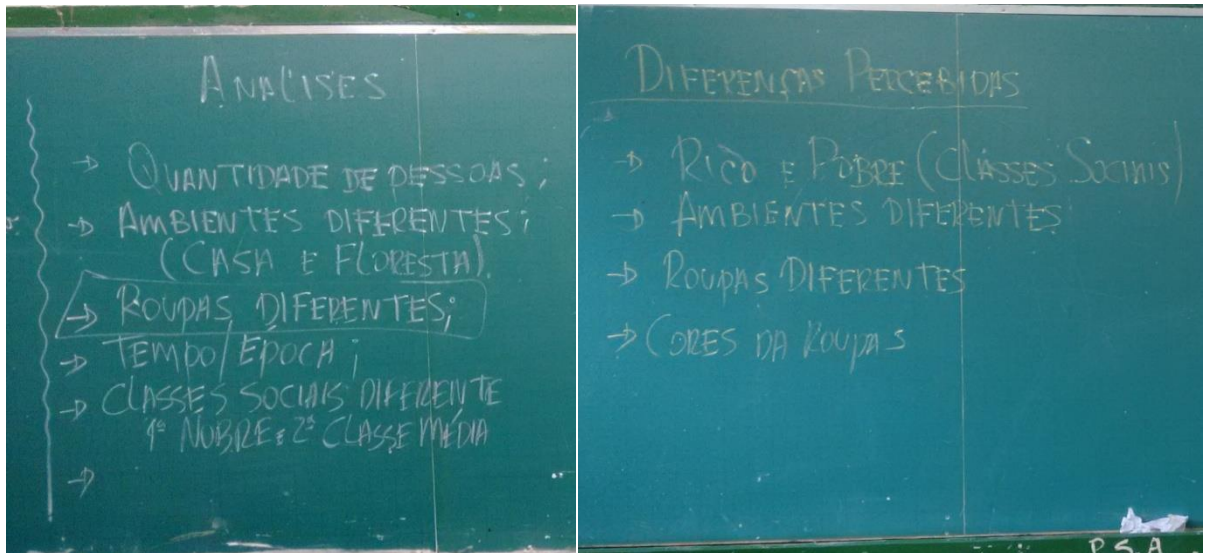 ANALISES
→ QUANTIDADE DE PESSOAS;
→ AMBIENTES DIFERENTES;
(CASA E FLORESTA)
→ ROUPAS DIFERENTES;
→ TEMPO/ÉPOCA;
→ CLASSES SOCIAIS DIFERENTE
1ª NOBRE E 2ª CLASSE MÉDIA
→
DIFERENÇAS PERCEBIDAS
→ RICO E POBRE (CLASSES SOCIAIS)
→ AMBIENTES DIFERENTES
→ ROUPAS DIFERENTES
→ CORES DA ROUPAS
PSA